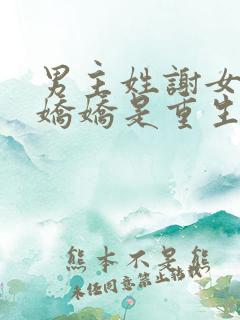 男主姓謝女
嬌嬌是重生
熊本不是熊
未經同意禁止轉載